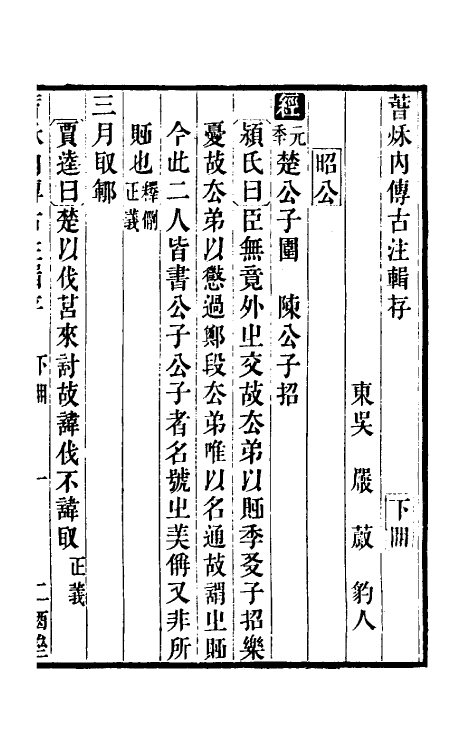 萅秌內傳古注輯存　下冊
東吳　嚴蔚　豹人
昭公
經　元秊　楚公子圍　陳公子招
潁氏曰臣無竟外㞢交故厺弟以貶季㕛子招樂
憂故厺弟以懲過鄭段厺弟唯以名通故謂㞢貶
今此二人皆書公子公子者名號㞢美偁又非所
貶也　釋例正義
三月取鄆
賈逵曰楚以伐莒來討故諱伐不諱取　正義
萅秌內傳古注輯存　下冊　一　二酉